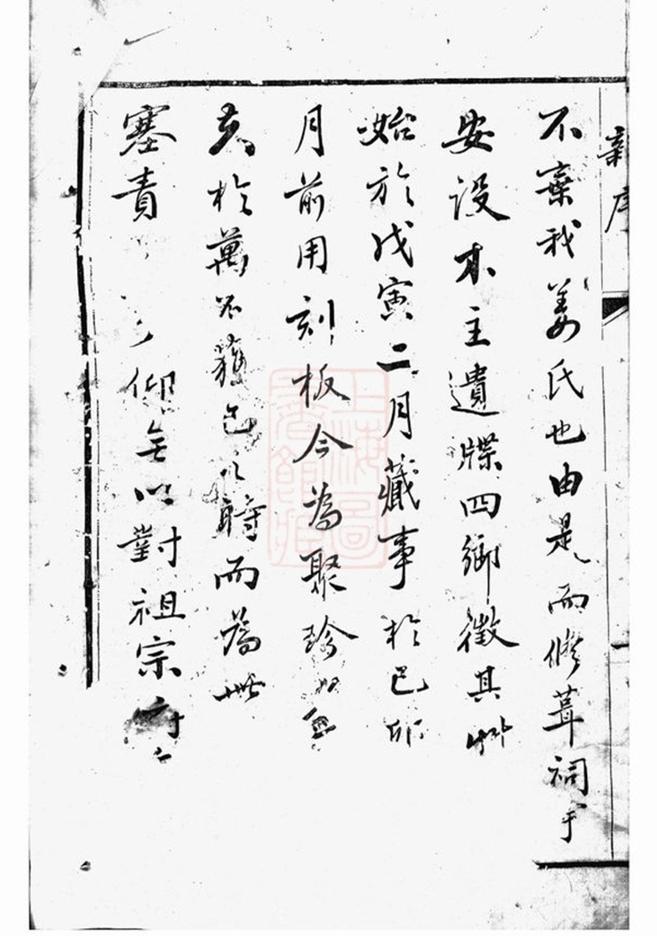 新序
不棄我姜氏也由是而修葺祠宇
安设木主遺牒四鄉徵其
始於戊寅二月藏事於己卯
月前用刻板今為聚珍
於萬不獲已 時而為
塞責
仰無以對祖宗
上海圖書館藏